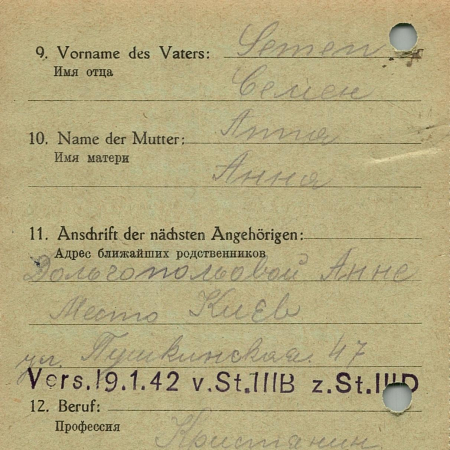 9. Vorname des Vaters: Semen
Имя отца
Семен
10. Name der Mutter: Anna
Имя матери
Анна
11. Anschrift der nächsten Angehörigen:
Адрес ближайших родственников
Дольгопольовой Анне
Место Киев
ул. Пушкинская 47
Vers.19.1.42 v.St.IIIB z.St.IIID
12. Beruf:
Профессия
Кристанин